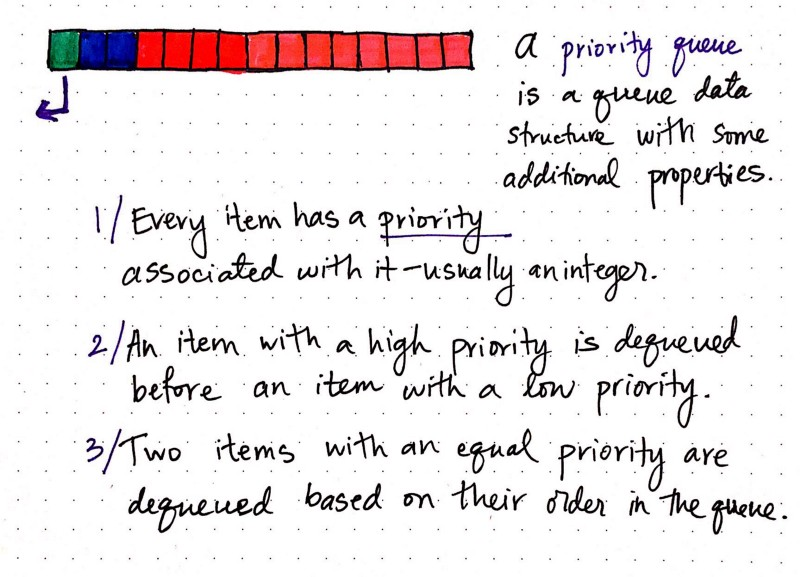 a priority queue
is a queue data
structure with some
additional properties.
1/ Every item has a priority
associated with it - usually an integer.
2/ An item with a high priority is dequeued
before an item with a low priority.
3/ Two items with an equal priority are
dequeued based on their order in the queue.